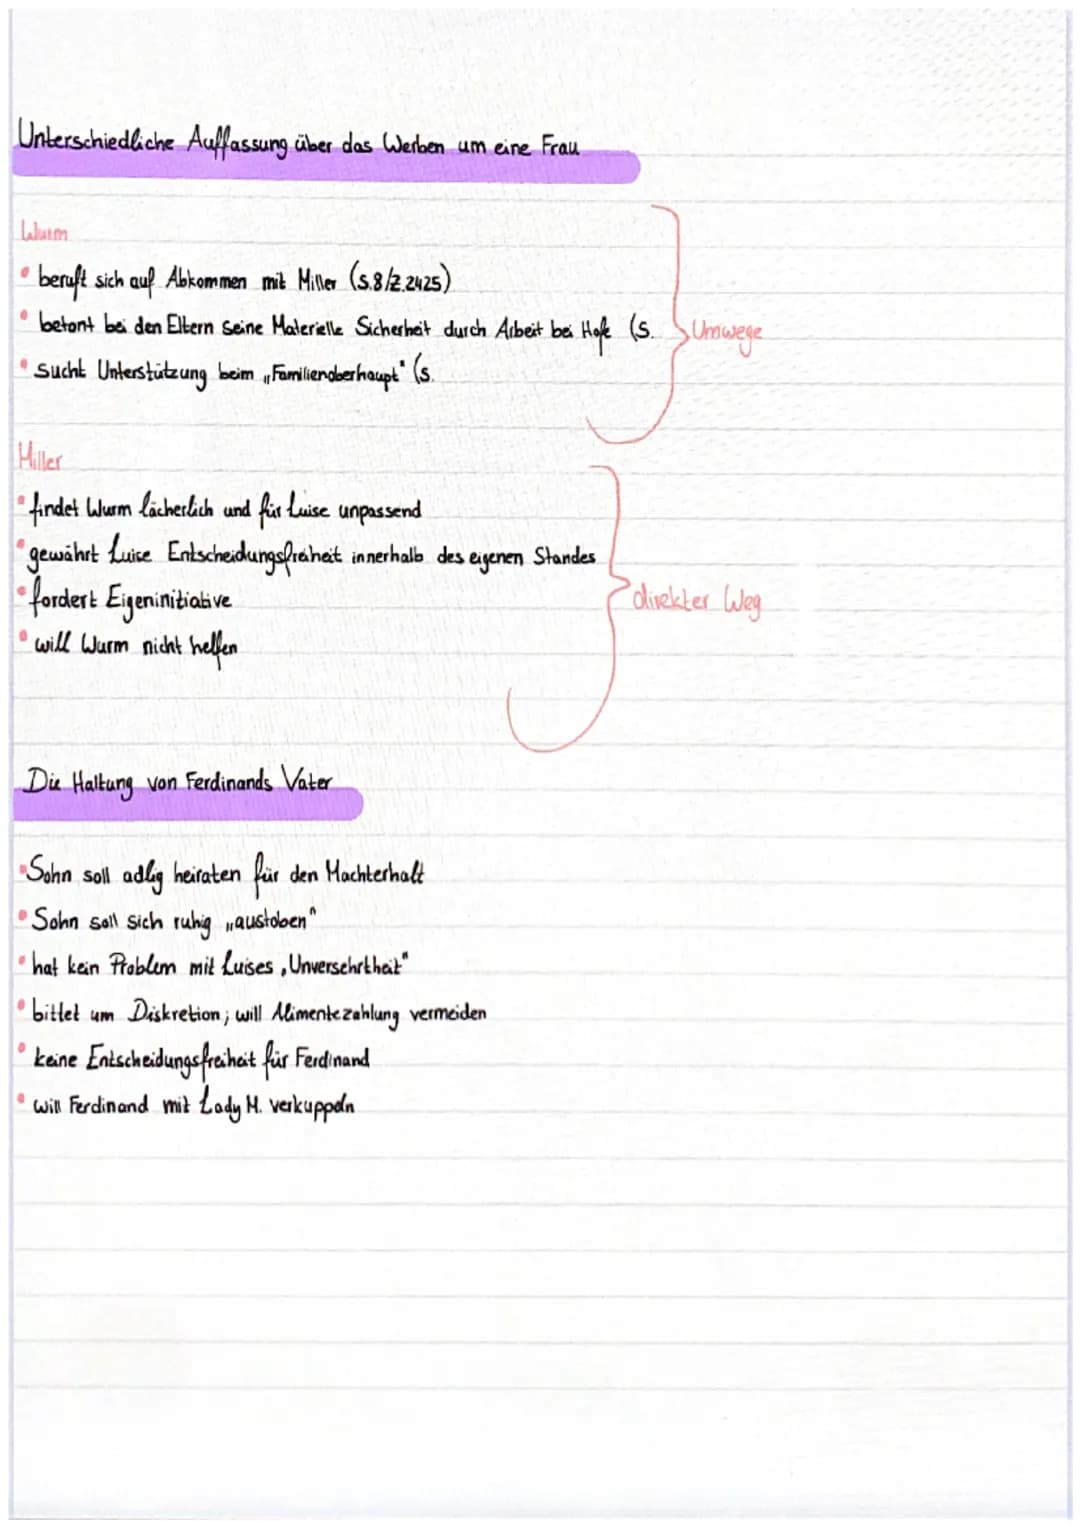 Unterschiedliche Auffassung über das Werben um eine Frau
Wurm
• beruft sich auf Abkommen mit Miller (S.8/Z.2425)
• betont bei den Eltern seine Materielle Sicherheit durch Arbeit bei Hofe (S.
• sucht Unterstützung beim „Familienoberhaupt" (S.
Umwege
Miller
• findet Wurm lächerlich und für Luise unpassend
• gewährt Luise Entscheidungsfreiheit innerhalb des eigenen Standes
• fordert Eigeninitiative
• will Wurm nicht helfen
direkter Weg
Die Haltung von Ferdinands Vater
• Sohn soll adlig heiraten für den Machterhalt
• Sohn soll sich ruhig „austoben"
• hat kein Problem mit Luises „Unversehrtheit"
• bittet um Diskretion; will Alimentezahlung vermeiden
• keine Entscheidungsfreiheit für Ferdinand
• will Ferdinand mit Lady M. verkuppeln